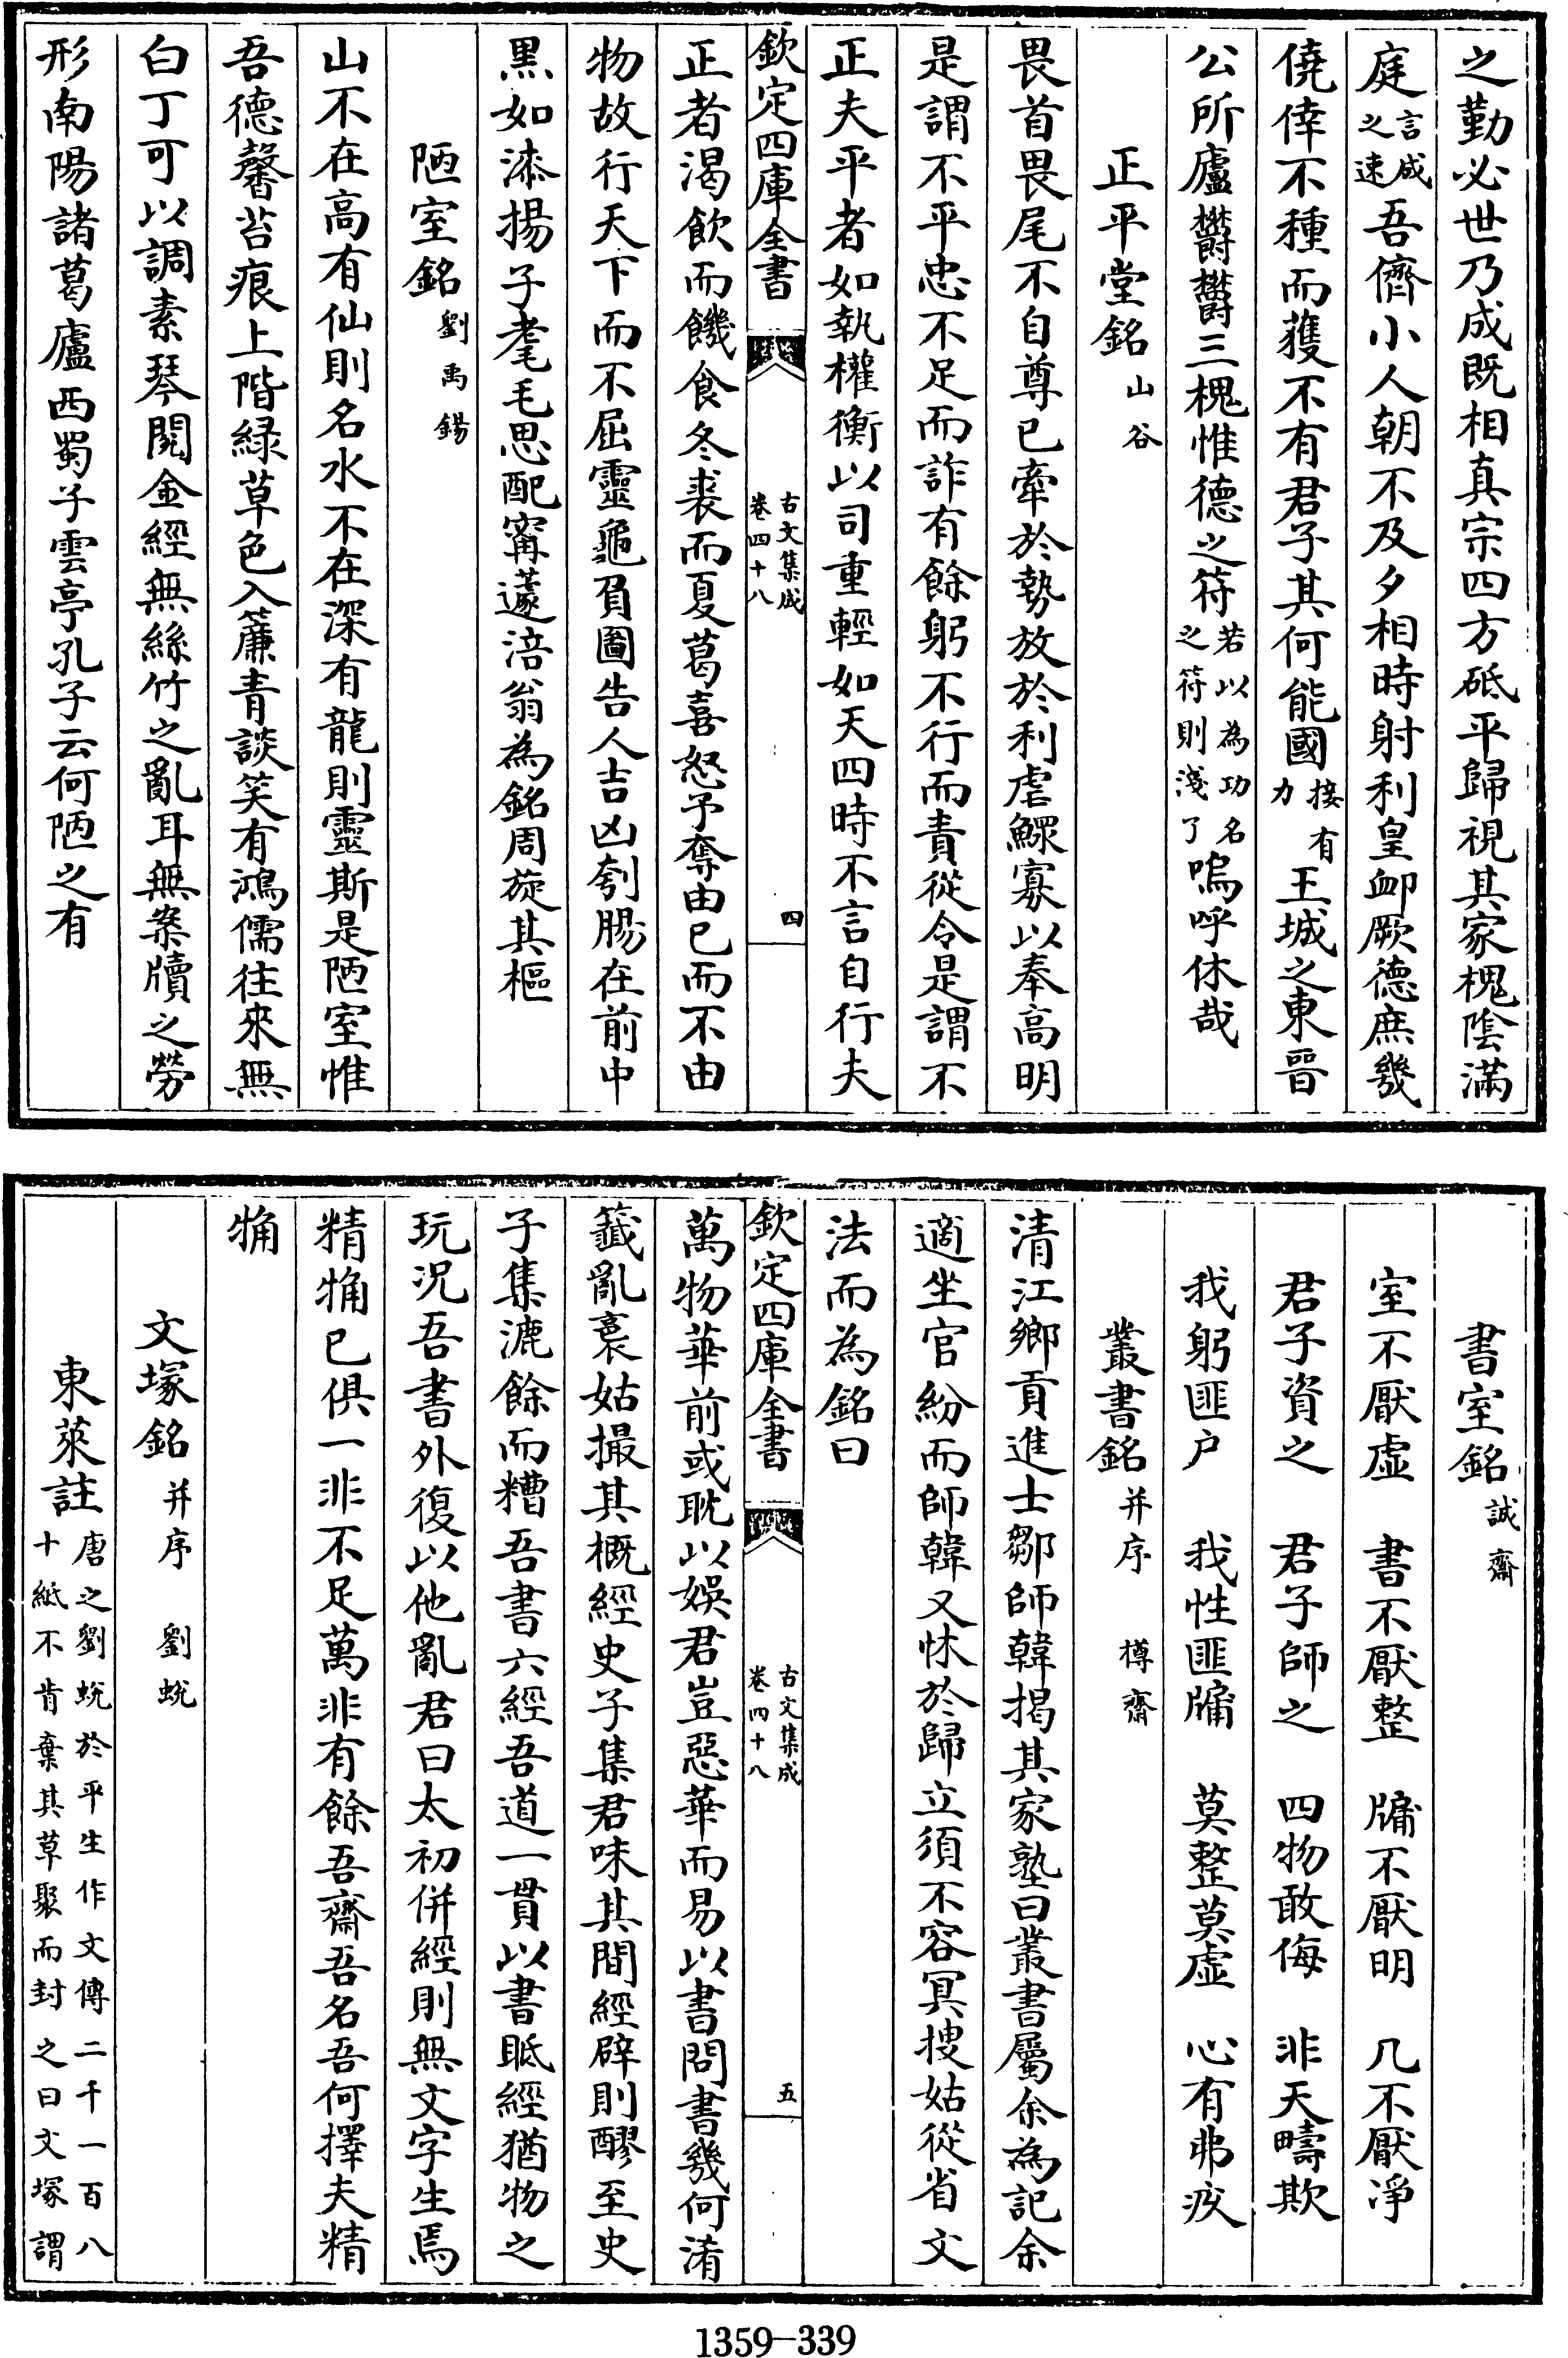 之勤必世乃成既相真宗四方砥平歸視其家槐隂滿
庭言成之速吾儕小人朝不及夕相時射利皇䘏厥德庶幾
僥倖不種而穫不有君子其何能國接有力王城之東晉
公所廬欝欝三槐惟德之符若以為功名之符則淺了嗚呼休哉
正平堂銘山谷
畏首畏尾不自尊已牽於勢放於利虐鰥寡以奉高明
是謂不平忠不足而詐有餘躬不行而責從令是謂不
正夫平者如執權衡以司重輕如天四時不言自行夫
欽定四庫全書
古文集成
卷四十八
四
正者渴飲而饑食冬裘而夏葛喜怒予奪由已而不由
物故行天下而不屈靈龜負圖告人吉凶刳腸在前中
黑如漆揚子耄毛思配甯蘧涪翁為銘周旋其樞
陋室銘劉禹錫
山不在高有仙則名水不在深有龍則靈斯是陋室惟
吾德馨苔痕上階緑草色入簾青談笑有鴻儒往來無
白丁可以調素琴閱金經無絲竹之亂耳無案牘之勞
形南陽諸葛廬西蜀子雲亭孔子云何陋之有
書室銘誠齋
室不厭虛 書不厭整 牖不厭明 几不厭凈
君子資之 君子師之 四物敢侮 非天疇欺
我躬匪户 我性匪牖 莫整莫虛 心有弗疚
叢書銘并序 樽齋
清江鄉貢進士鄒師韓揭其家塾曰叢書屬余為記余
適坐官紛而師韓又怵於歸立須不容冥搜姑從省文
法而為銘曰
欽定四庫全書
古文集成
卷四十八
五
萬物華前或耽以娛君豈惡華而易以書問書幾何淆
籖亂袠姑撮其概經史子集君味其間經辟則醪至史
子集漉餘而糟吾書六經吾道一貫以書眡經猶物之
玩况吾書外復以他亂君曰太初併經則無文字生焉
精觕已俱一非不足萬非有餘吾齋吾名吾何擇夫精
觕
文塚銘并序 劉蛻
東萊註唐之劉蛻於平生作文傳二千一百八十紙不肯棄其草聚而封之曰文塚謂
1359-339